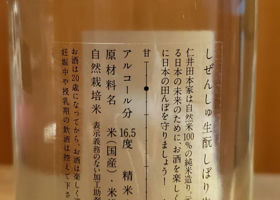 しぜんしゅ生酛 しぼり
仁井田本家は自然米100%の純米造り。
る日本の未来のために、お酒を楽しく
に日本の田んぼを守りましょう！
甘
アルコール分 16.5度 精米
原材料名 米(国産)・米
自然栽培米 表示義務のない加工助
お酒は20歳になってから。お酒は楽しく
妊娠中や授乳期の飲酒は控えて下さ